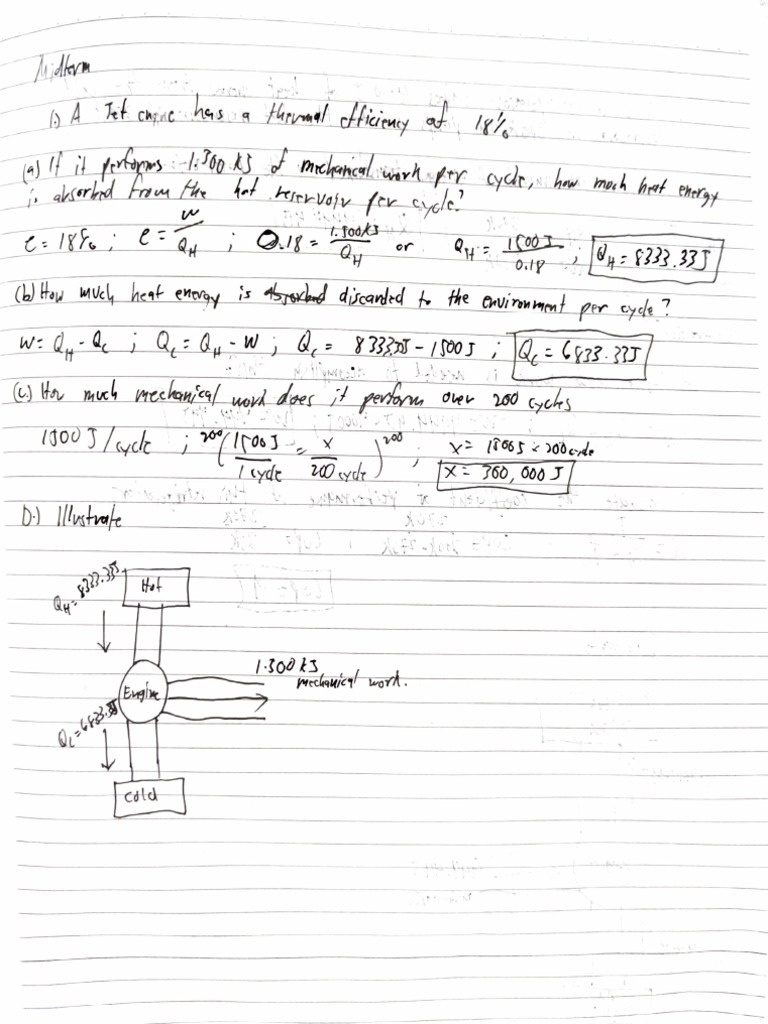 Midterm
1.) A Jet engine has a thermal efficiency of 18%
(a) If it performs 1.500 kJ of mechanical work per cycle, how much heat energy
is absorbed from the hot reservoir per cycle?
e = 18% ; e = W/QH ; 0.18 = 1.500kJ/QH or QH = 1500J/0.18 ; QH = 8333.33J
(b) How much heat energy is discarded to the environment per cycle?
W = QH - QC ; QC = QH - W ; QC = 8333.33J - 1500J ; QC = 6833.33J
(c.) How much mechanical work does it perform over 200 cycles
1500 J/cycle ; 200 (1500J/1 cycle = x/200 cycle) 200 ; x = 1500J x 200 cycle
x = 300,000 J
D.) Illustrate
QH = 8333.33J
Hot
1.500 kJ
mechanical work.
Engine
QC = 6833.33J
Cold